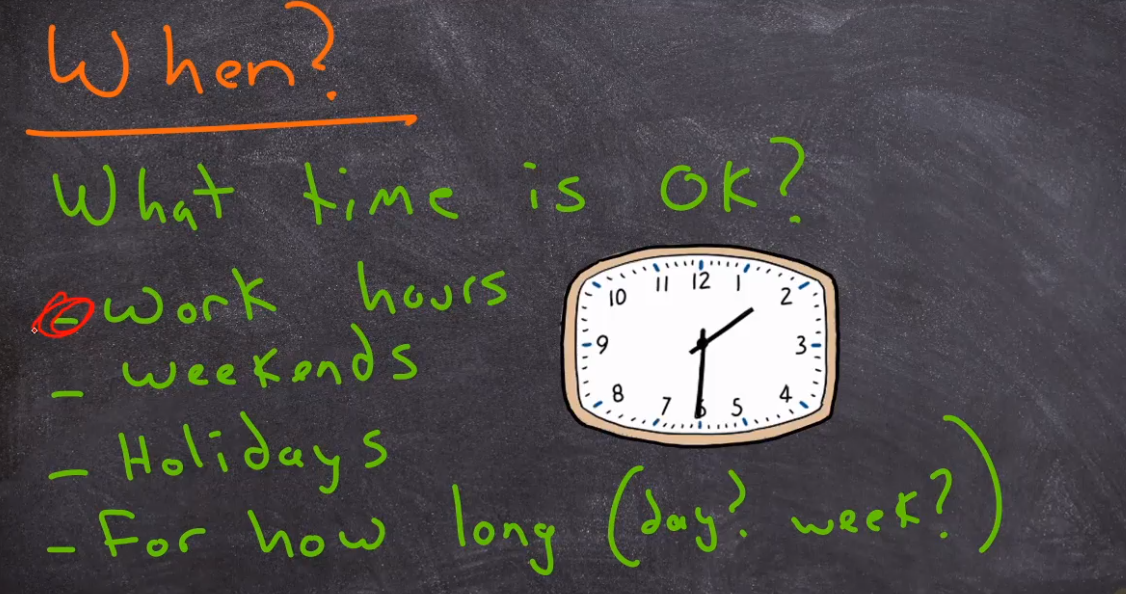 When?
What time is OK?
- Work hours
- Weekends
- Holidays
- For how long (day? week?)
12
1
2
3
4
5
6
7
8
9
10
11